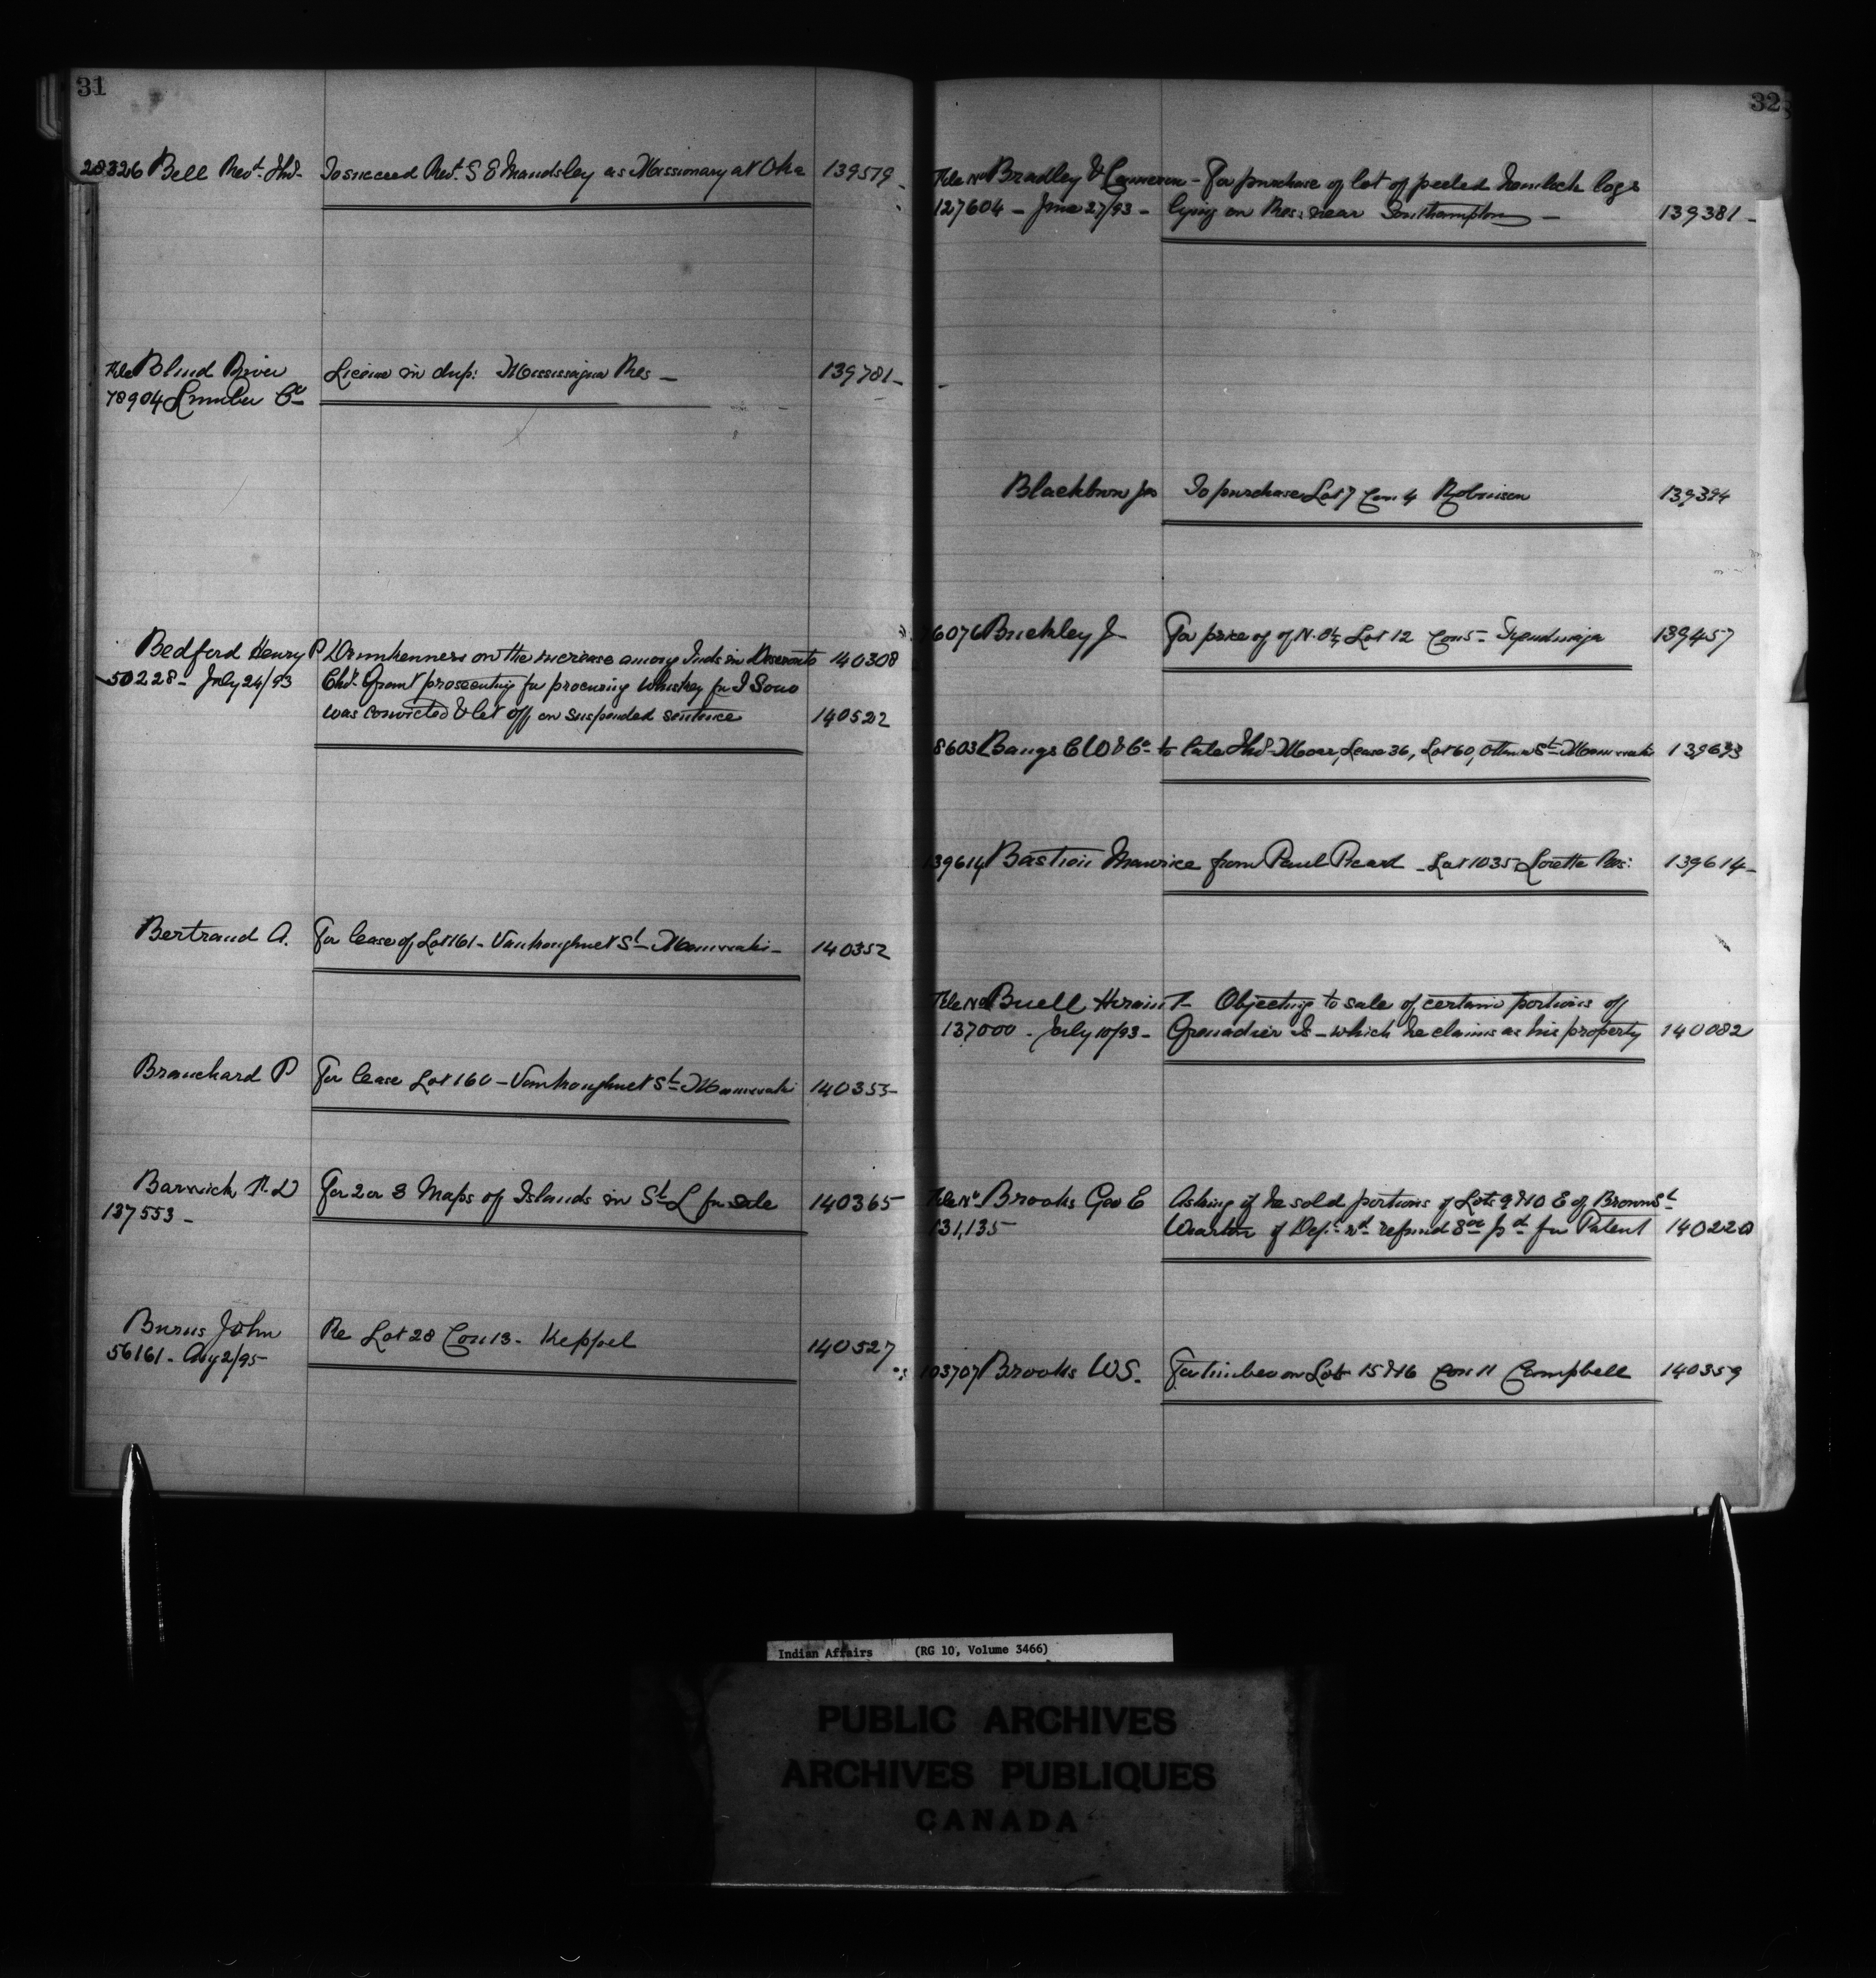 31
28326 Bell Revd. Jno. To succeed Revd. S E Maudsley as Missionary at Oka 139579
File Blind River License in dup: Mississagua Res — 139781
78904 Lumber Co
Bedford Henry P Drunkenness on the increase among Inds in Deseronto 140308
50228 - July 24/93 Chf. prosecuting for procuring Whiskey for I
was convicted & let off on suspended sentence 140522
Bertrand A. For lease of Lot 161 - Vankoughnet St - Maniwaki - 140352
Branchard P For lease Lot 160 - Vankoughnet St - Maniwaki 140353
Barwick For 2 or 3 Maps of Islands in St L for sale 140365
137553 -
Burns John Re Lot 28 Con 13 - Keppel 140527
56161 - Aug 2/95
32
File No Bradley & - For purchase of lot of peeled hemlock logs
127604 - June 27/93 - lying on Res: near Southampton — 139381
Blackburn Jas To purchase Lot 7 Con 4 Robinson 139394
6076 Buckley J For price of of N. Lot 12 Con 5 - 139457
8603 Bangs C W & Co - to late Jno Moore, Lease 36, Lot 60, Ottawa St - Maniwaki 139633
139614 Bastien Maurice from Paul Picard - Lot 1035 Lorette Res: 139614
File No Buell Hiram - Objecting to sale of certain portions of
137000 - July 10/93 - Grenadier Is - which he claims as his property 140082
File No Brooks Geo E Asking if he sold portions of Lots 9 & 10 E of Brown St
131,135 Wiarton if Dept. wd. refund pd for Patent 140220
103707 Brooks W S. For timber on Lots 15 & 16 Con 11 Campbell 140359
Indian Affairs (RG 10, Volume 3466)
PUBLIC ARCHIVES
ARCHIVES PUBLIQUES
CANADA